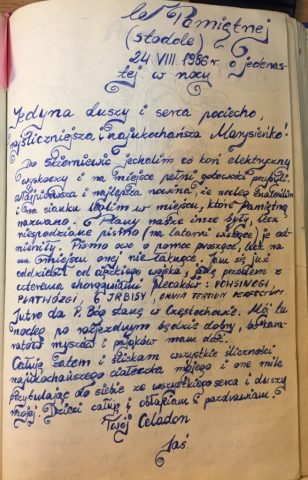 w Pamiętnej
(stodole)
24 VIII 1986 r. o jedenas-
tej w nocy
Jedyna duszy i serca pociecho,
najśliczniejsza i najukochańsza Marysieńko!
Do Skierniewic jechalim co koń elektryczny
wyskoczy i na miejsce pełni gotowości przybyli.
Najpierwsza i najlepsza nowina że nocleg znaleźlim
na sianku w miejscu, które Pamiętną
nazwano. Plany nasze insze były, lecz
niespodziane pismo (na latarni wiszące) je od-
mieniły. Pismo owo o pomoc proszące, lecz na
miejscu onej nie łaknące. Tom się już
oddzielił od ciężkiego wojska, jadę przodem z
czterema chorągwiami plecaków:
6 JRBISY, OMNIA TERTIUM
Jutro da P. Bóg stanę w Częstochowie. Mój tu
nocleg po będzie dobry, bo kama-
ratów myszów i pająków mam dość.
Całuję zatem i ściskam wszystkie śliczności
najukochańszego ciałeczka mojego i one mile
przytulając do siebie ze wszystkiego serca i duszy
mojej. Dzieci całuję i obłapiam i pozdrawiam.
Twój Celadon
Jaś